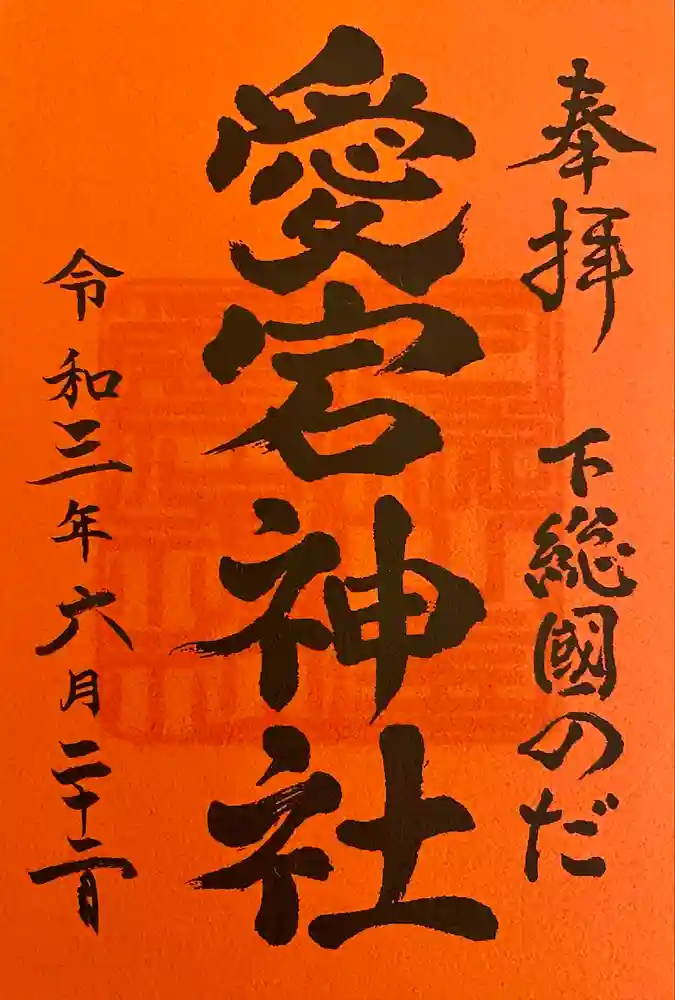 奉拝 下総國のだ
愛宕神社
令和三年六月二十二日